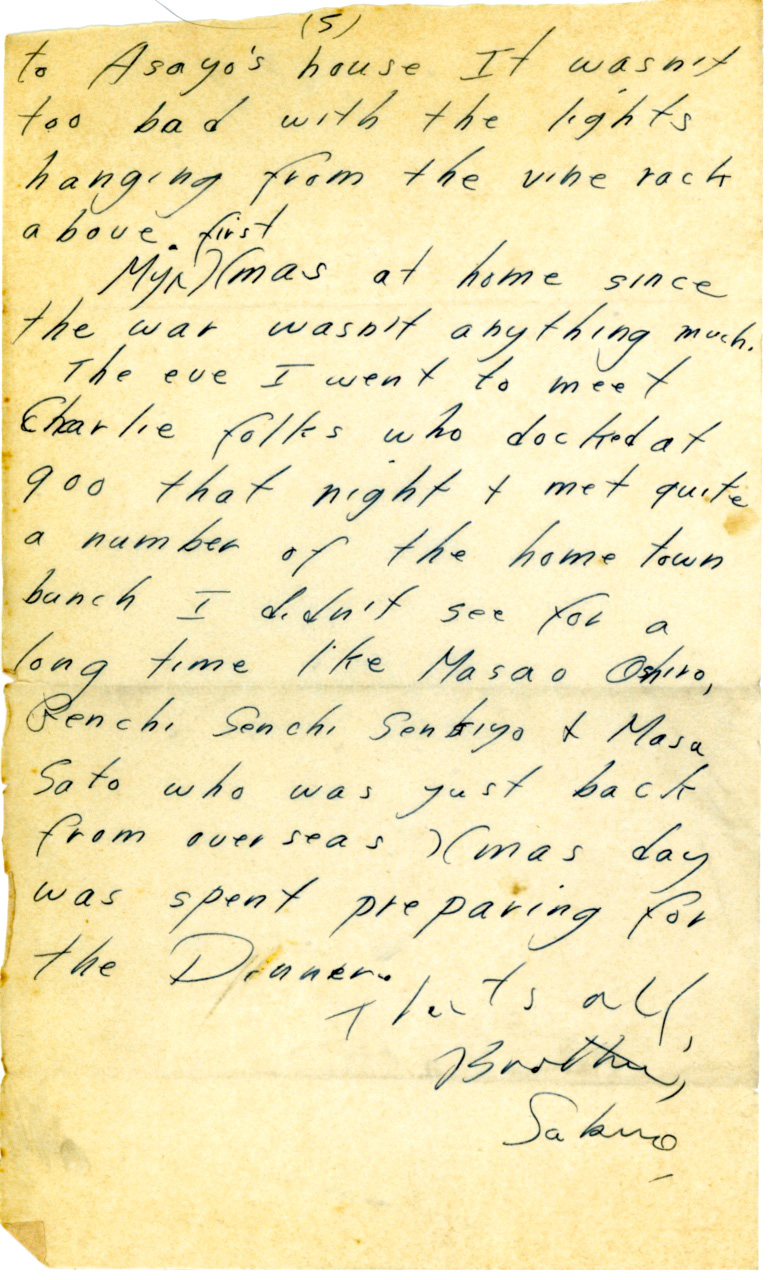 (5)
to Asayo's house It wasn't
too bad with the lights
hanging from the vine rack
above.
My first Xmas at home since
the war wasn't anything much.
The eve I went to meet
Charlie folks who docked at
900 that night & met quite
a number of the home town
bunch I didn't see for a
long time like Masao Oshiro,
Senchi Senkiyo & Masa
Sato who was just back
from overseas Xmas day
was spent preparing for
the Dinner.
That's all,
Brother,
Saburo